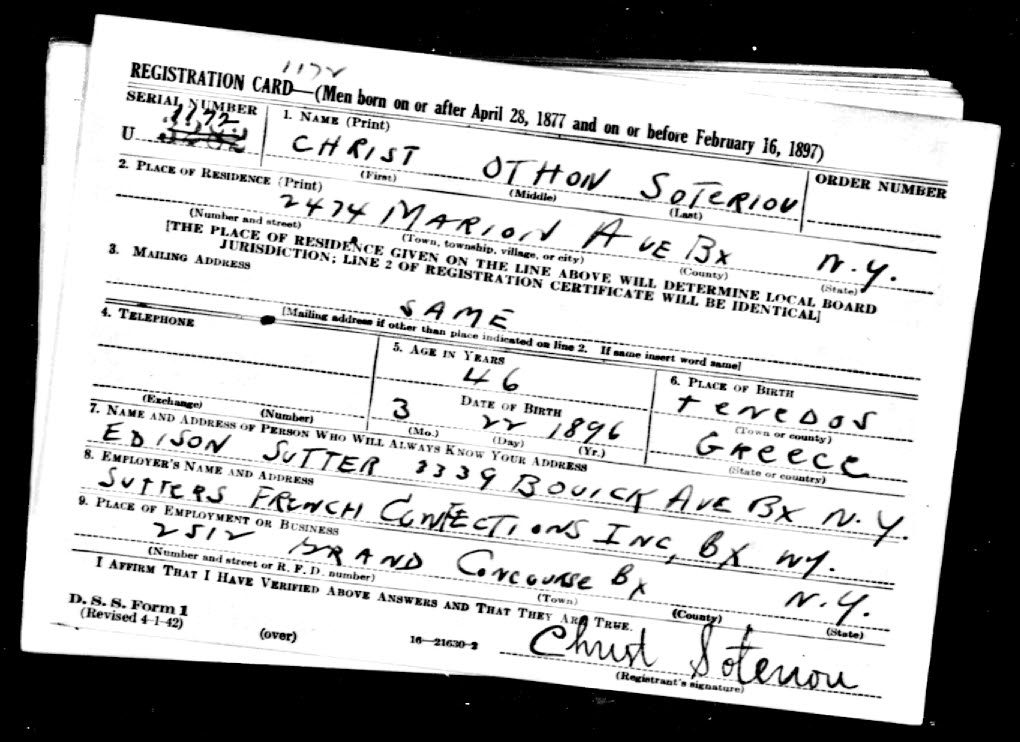 1172
REGISTRATION CARD—(Men born on or after April 28, 1877 and on or before February 16, 1897)
SERIAL NUMBER
1172
U
1. NAME (Print)
CHRIST OTHON SOTERIOU
(First) (Middle) (Last)
ORDER NUMBER
2. PLACE OF RESIDENCE (Print)
2474 MARION AVE BX N.Y.
(Number and street) (Town, township, village, or city) (County) (State)
[THE PLACE OF RESIDENCE GIVEN ON THE LINE ABOVE WILL DETERMINE LOCAL BOARD
JURISDICTION; LINE 2 OF REGISTRATION CERTIFICATE WILL BE IDENTICAL]
3. MAILING ADDRESS
SAME
[Mailing address if other than place indicated on line 2. If same insert word same]
4. TELEPHONE
(Exchange) (Number)
5. AGE IN YEARS
46
DATE OF BIRTH
3 22 1896
(Mo.) (Day) (Yr.)
6. PLACE OF BIRTH
TENEDOS
(Town or county)
GREECE
(State or country)
7. NAME AND ADDRESS OF PERSON WHO WILL ALWAYS KNOW YOUR ADDRESS
EDISON SUTTER 3339 AVE BX N.Y.
8. EMPLOYER'S NAME AND ADDRESS
SUTTERS FRENCH CONFECTIONS INC, BX NY.
9. PLACE OF EMPLOYMENT OR BUSINESS
2512 GRAND CONCOURSE BX N.Y.
(Number and street or R. F. D. number) (Town) (County) (State)
I AFFIRM THAT I HAVE VERIFIED ABOVE ANSWERS AND THAT THEY ARE TRUE.
D. S. S. Form 1
(Revised 4-1-42)
(over)
16—21630-2
Christ Soteriou
(Registrant's signature)